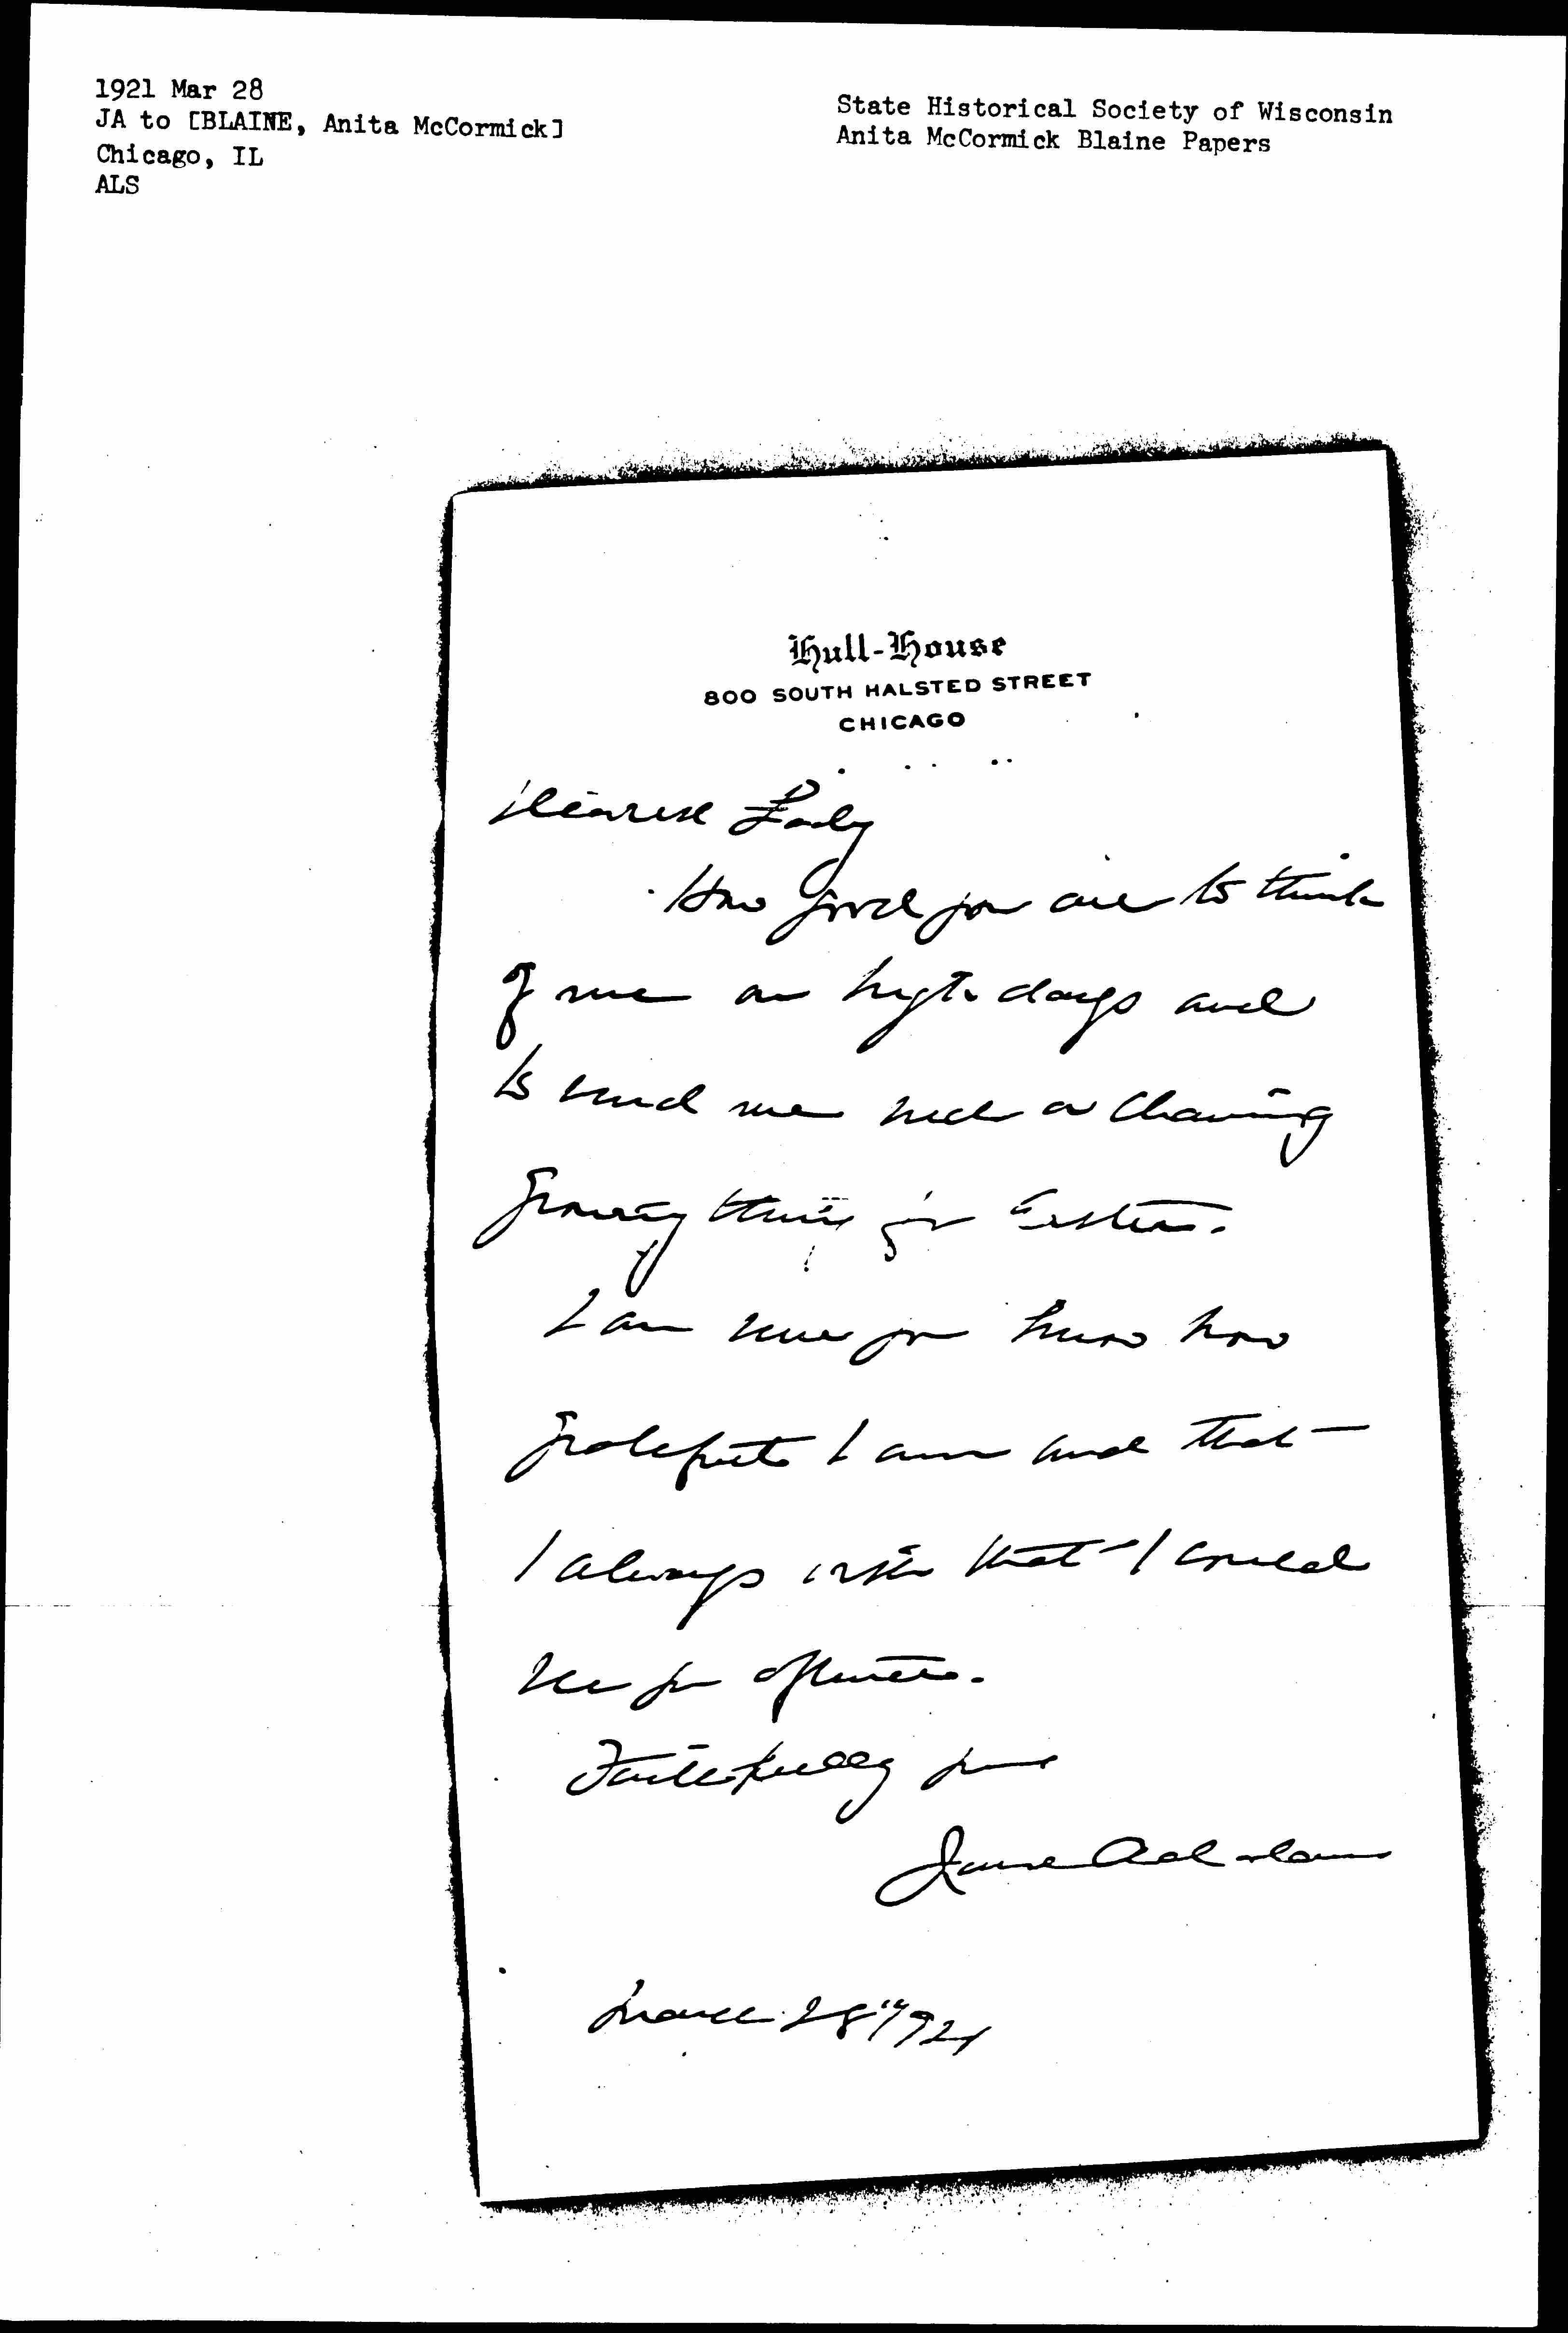 1921 Mar 28
JA to [BLAINE, Anita McCormick]
Chicago, IL
ALS
State Historical Society of Wisconsin
Anita McCormick Blaine Papers
Hull-House
800 SOUTH HALSTED STREET
CHICAGO
Dearest Lady
How good you are to think
of me on high days and
to send me such a charming
growing thing for Easter.
I am sure you know how
grateful I am and that
I always wish that I could
see you oftener.
Faithfully yours
Jane Addams
March 28" 1921